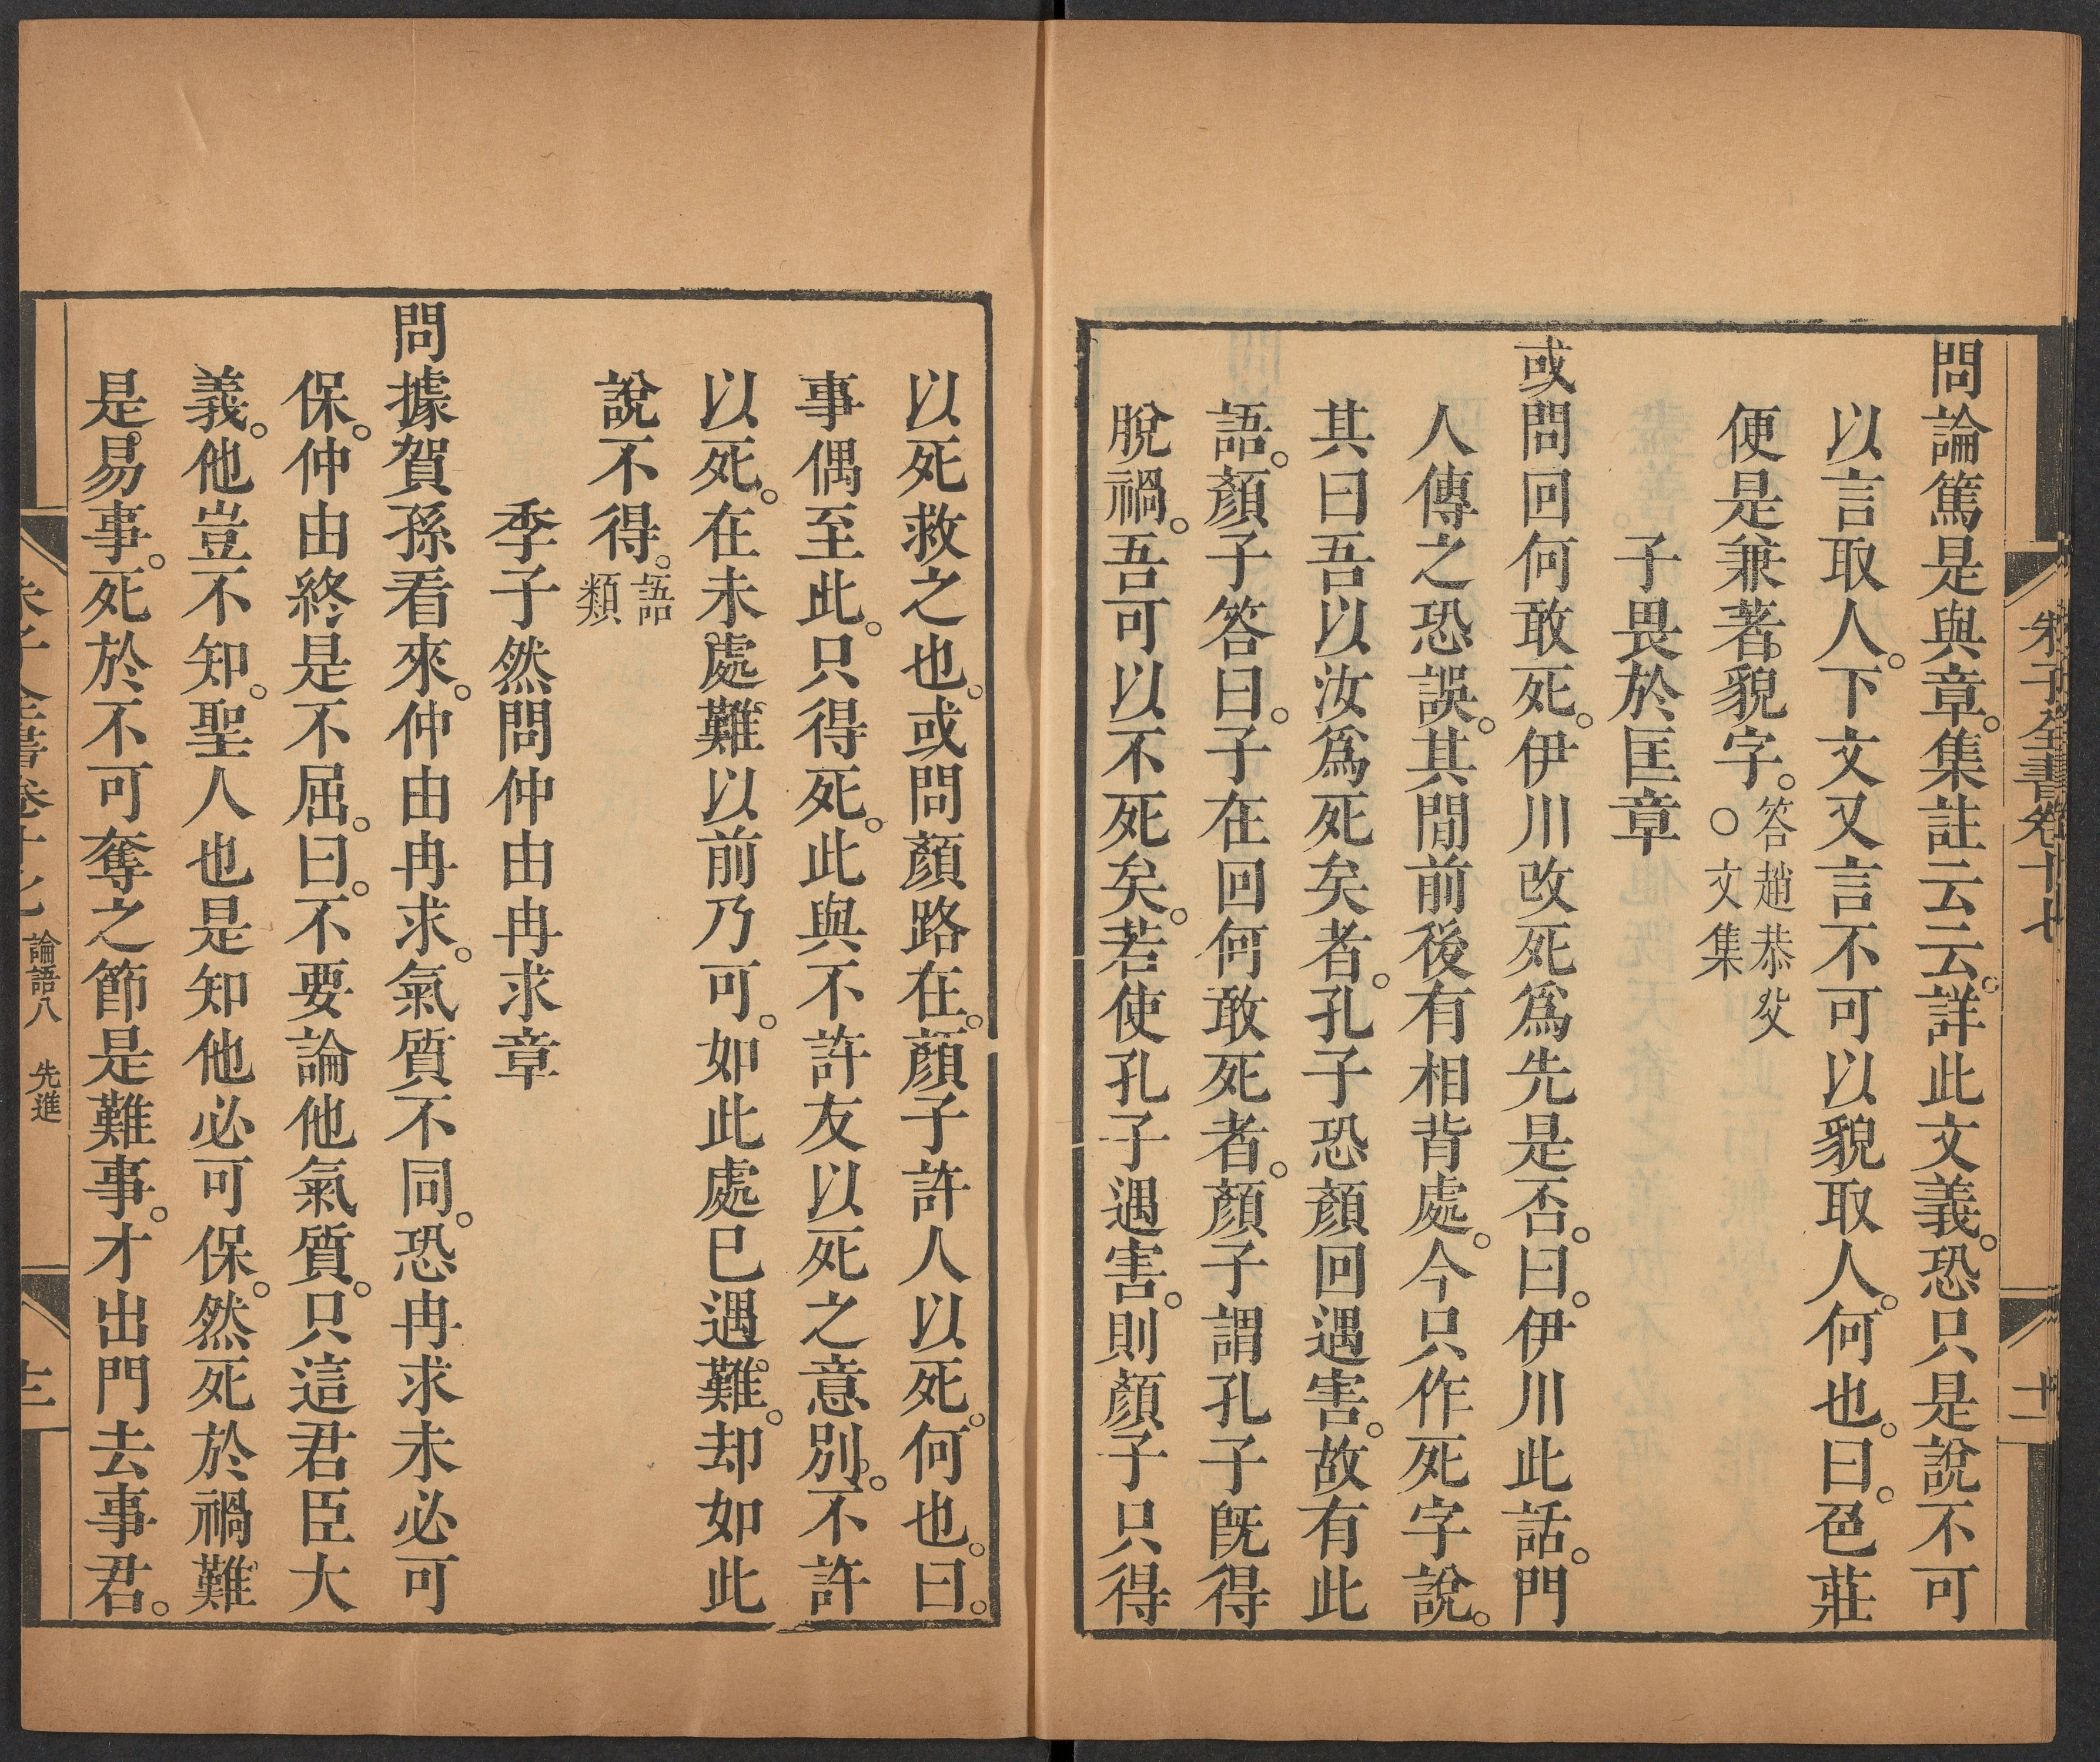 朱子全書卷十七
十一
問論篤是與章。集註云云。詳此文義。恐只是說不可
以言取人。下文又言不可以貌取人。何也。曰。色莊
便是兼著貌字。答趙恭父○文集
子畏於匡章
或問回何敢死。伊川改死爲先是否。曰。伊川此話。門
人傳之恐誤。其閒前後有相背處。今只作死字說。
其曰吾以汝爲死矣者。孔子恐顏回遇害。故有此
語。顏子答曰。子在回何敢死者。顏子謂孔子旣得
脫禍。吾可以不死矣。若使孔子遇害。則顏子只得
以死救之也。或問顏路在。顏子許人以死。何也。曰。
事偶至此。只得死。此與不許友以死之意別。不許
以死。在未處難以前乃可。如此處已遇難。却如此
說不得。語類
季子然問仲由冉求章
問據賀孫看來。仲由冉求。氣質不同。恐冉求未必可
保。仲由終是不屈。曰。不要論他氣質。只這君臣大
義。他豈不知。聖人也是知他必可保。然死於禍難
是易事。死於不可奪之節是難事。才出門去事君。
論語八 先進